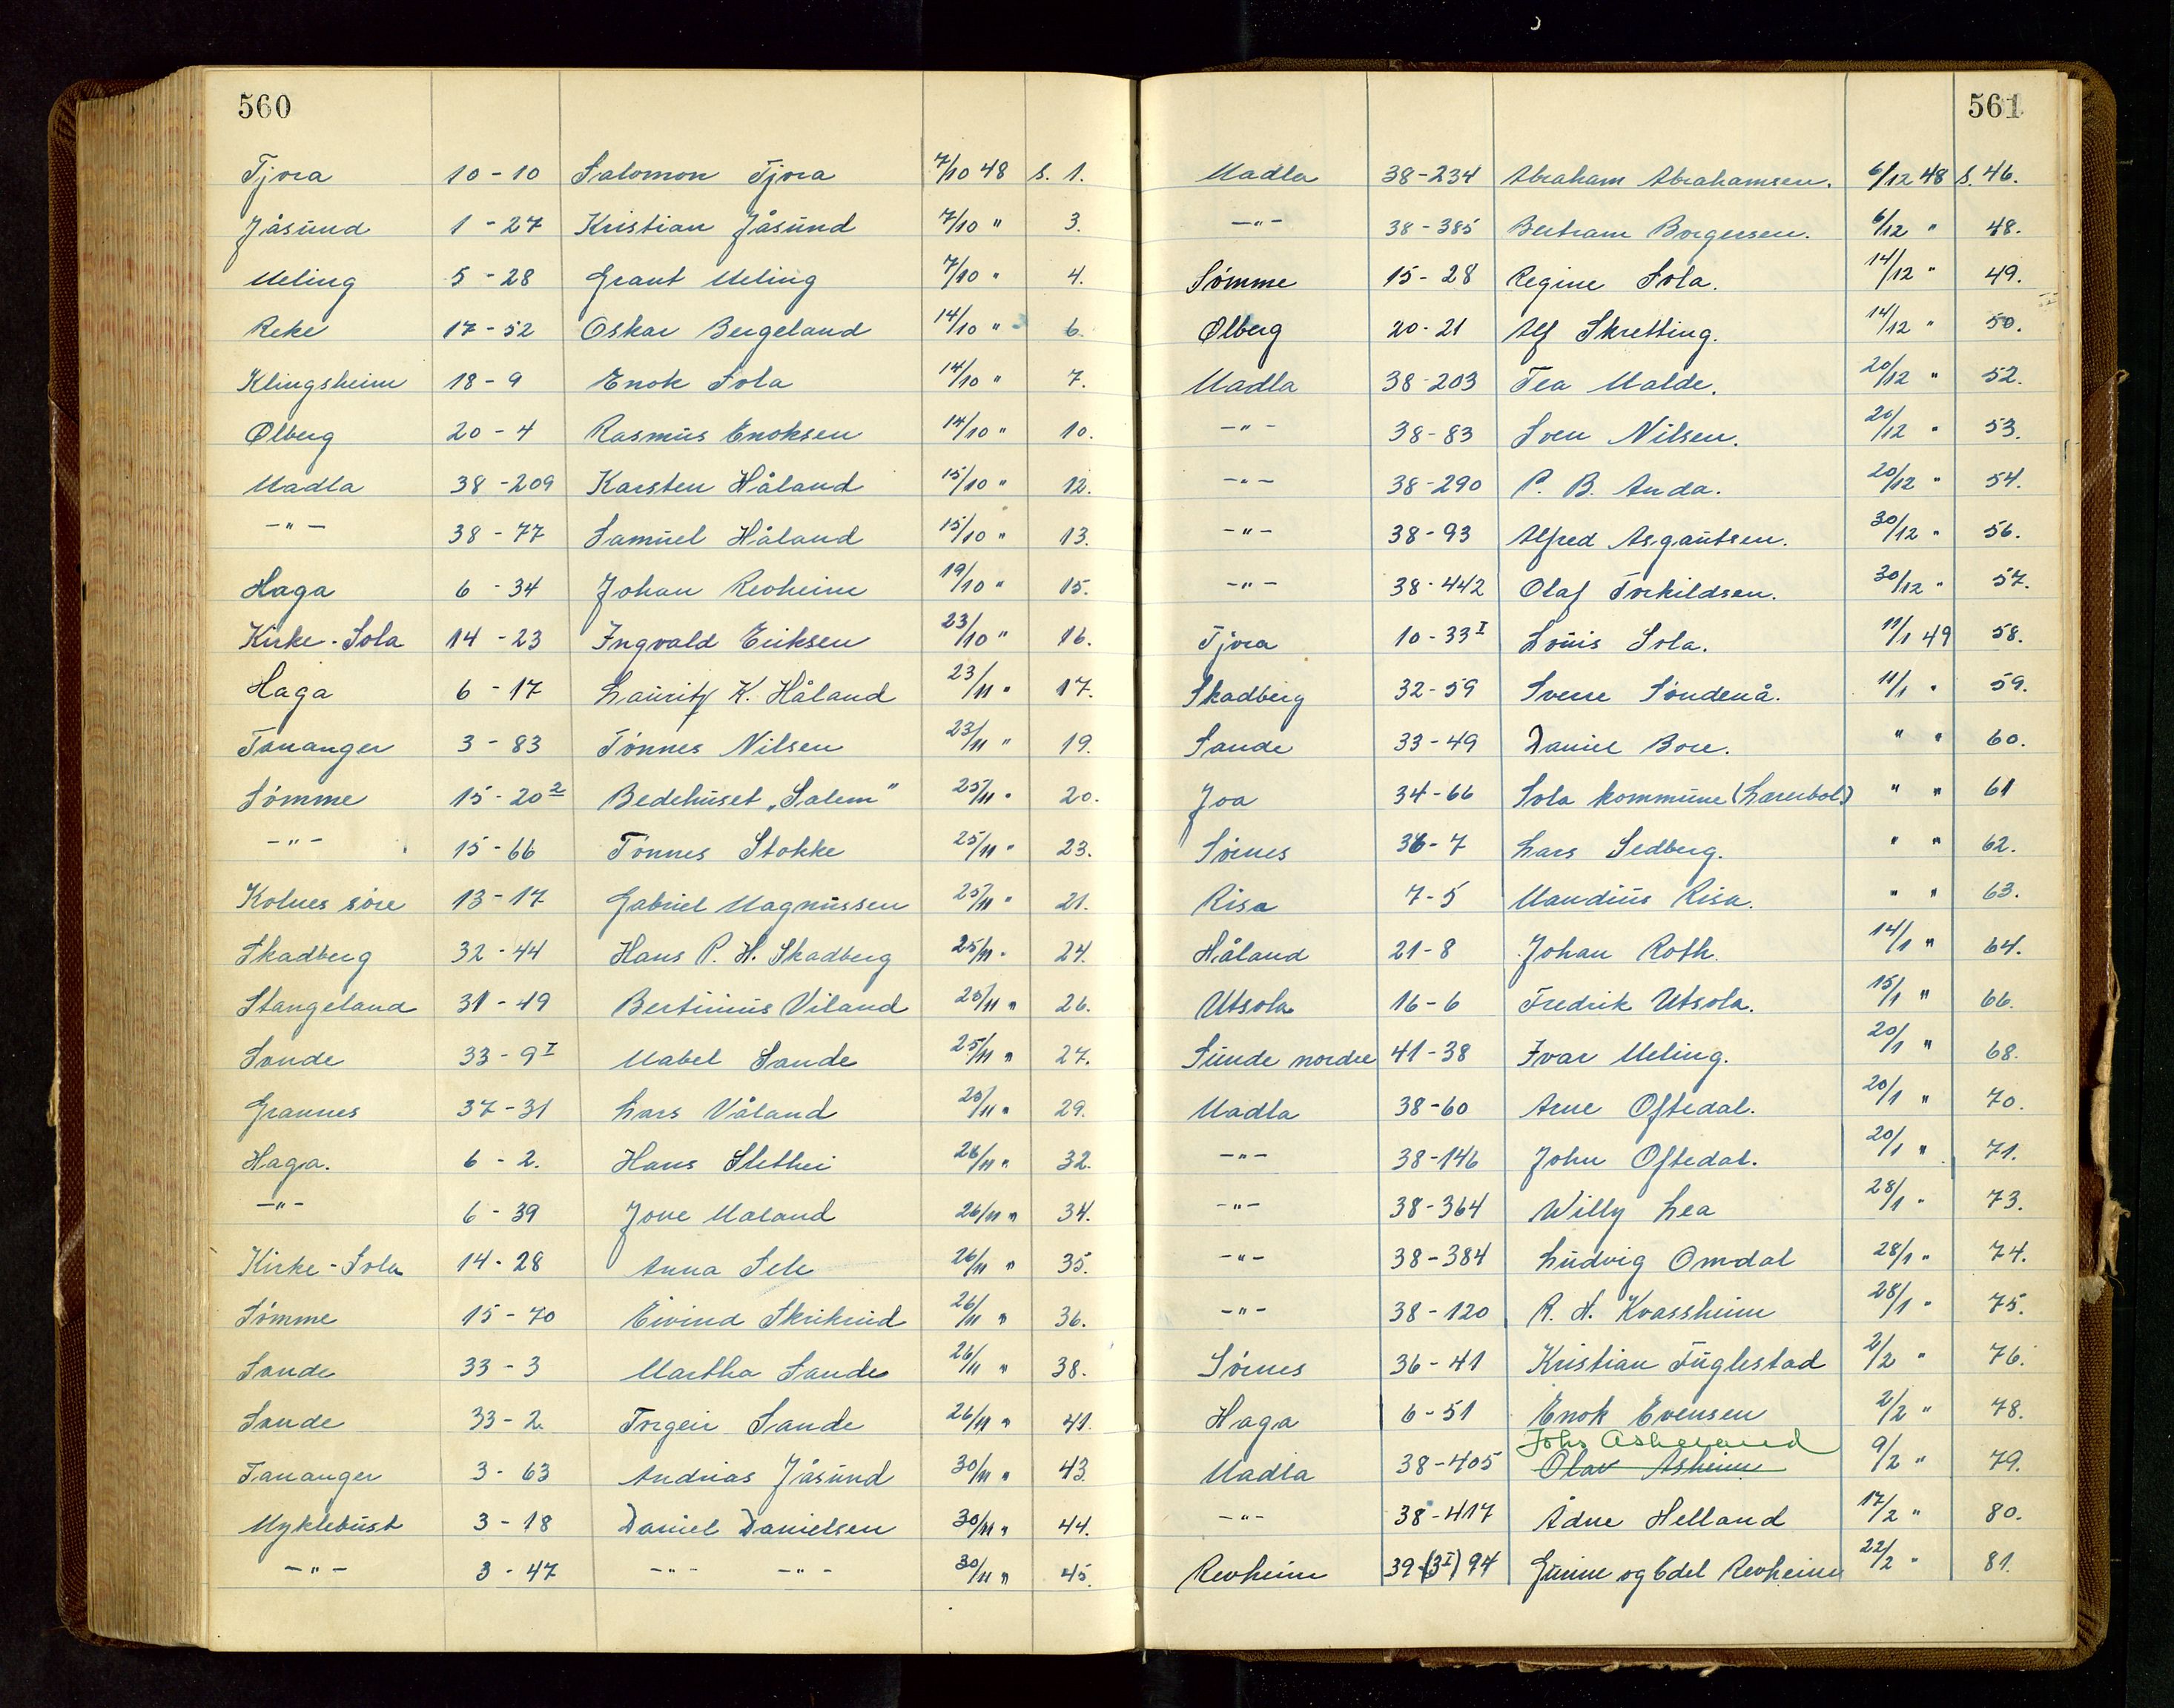 560
Tjora 10-10 Salomon Tjora 7/10 48 s. 1.
Jåsund 1-27 Kristian Jåsund 7/10 " 3.
Meling 5-28 Graut Meling 7/10 " 4.
Reke 17-52 Oskar Bergeland 14/10 " 6.
Klingsheim 18-9 Enok Sola 14/10 " 7.
Ølberg 20-4 Rasmus Enoksen 14/10 " 10.
Madla 38-209 Karsten Håland 15/10 " 12.
-"- 38-77 Samuel Håland 15/10 " 13.
Haga 6-34 Johan Revheim 19/10 " 15.
Kirke-Sola 14-23 Ingvald Eriksen 23/10 " 16.
Haga 6-17 Lauritz K. Håland 23/11 " 17.
Tananger 3-83 Tönnes Nilsen 23/11 " 19.
Sömme 15-20² Bedehuset „Salem" 25/11 " 20.
-"- 15-66 Tönnes Stokke 25/11 " 23.
Kolnes söre 13-17 Gabriel Magnussen 25/11 " 21.
Skadberg 32-44 Hans P. H. Skadberg 25/11 " 24.
Stangeland 31-49 Bertinius Viland 25/11 " 26.
Sande 33-9 I Mabel Sande 25/11 " 27.
Grannes 37-31 Lars Våland 25/11 " 29.
Haga. 6-2. Hans Slethei 26/11 " 32.
-"- 6-39 Jone Maland 26/11 " 34.
Kirke-Sola 14-28 Anna Sele 26/11 " 35.
Sömme 15-70 Eivind Skrikrud 26/11 " 36.
Sande 33-3 Martha Sande 26/11 " 38.
Sande 33-2. Torgeir Sande 26/11 " 41.
Tananger 3-63 Andreas Jåsund 30/11 " 43.
Myklebust 3-18 Daniel Danielsen 30/11 " 44.
-"- 3-47 -"- -"- 30/11 " 45.
561
Madla 38-234 Abraham Abrahamsen. 6/12 48 s. 46.
-"- 38-385 Bertram Borgersen. 6/12 " 48.
Sömme 15-28 Regine Sola. 14/12 " 49.
Ølberg 20-21 Alf Skretting. 14/12 " 50.
Madla 38-203 Tea Malde. 20/12 " 52.
-"- 38-83 Sven Nilsen. 20/12 " 53.
-"- 38-290 P. B. Anda. 20/12 " 54.
-"- 38-93 Alfred Asgautsen. 30/12 " 56.
-"- 38-442 Olaf Torkildsen. 30/12 " 57.
Tjora 10-33 I Louis Sola. 11/1 49 58.
Skadberg 32-59 Sverre Söndenå. 11/1 " 59.
Sande 33-49 Daniel Bore. " " 60.
Joa 34-66 Sola kommune (Lærerbol.) " " 61
Sörnes 36-7 Lars Sedberg. " " 62.
Risa 7-5 Mandius Risa. " " 63.
Håland 21-8 Johan Roth. 14/1 " 64.
Utsola 16-6 Fredrik Utsola. 15/1 " 66.
Sunde nordre 41-38 Ivar Meling. 20/1 " 68.
Madla 38-60 Arne Oftedal. 20/1 " 70.
-"- 38-146 John Oftedal. 20/1 " 71.
-"- 38-364 Willy Lea 28/1 " 73.
-"- 38-384 Ludvig Omdal 28/1 " 74.
-"- 38-120 R. H. Kvassheim 28/1 " 75.
Sörnes 36-41 Kristian Fuglestad 2/2 " 76.
Haga 6-51 Enok Evensen 2/2 " 78.
Johs Askeland
Madla 38-405 Olav Asheim 9/2 " 79.
-"- 38-417 Ådne Helland 17/2 " 80.
Revheim 39-(3 I) 94 Gunne og Edel Revheim 22/2 " 81.